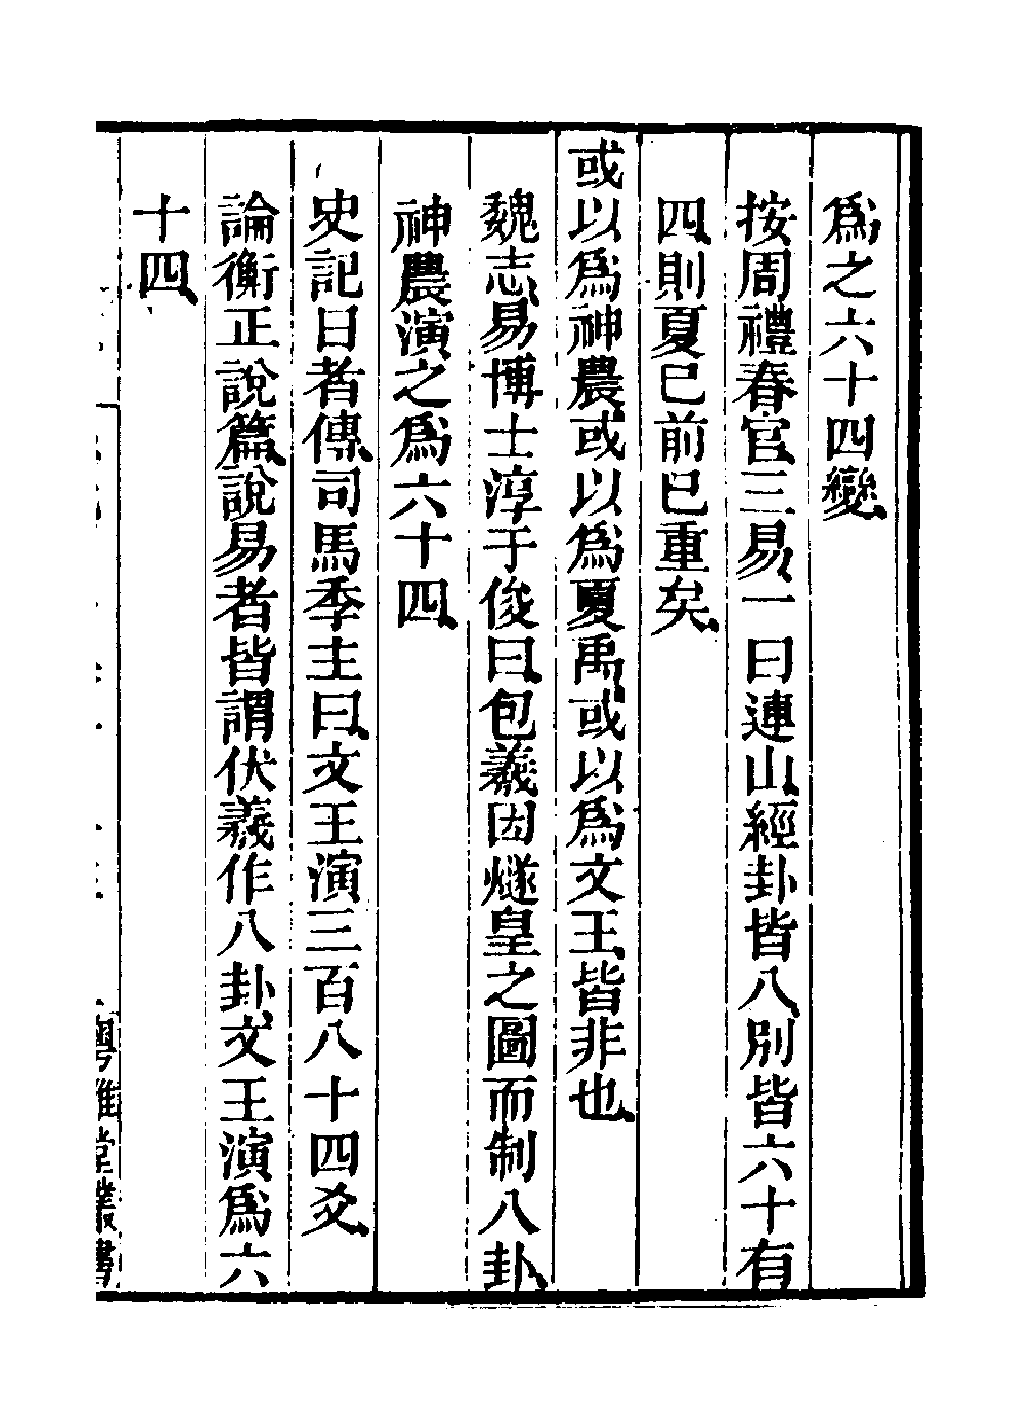 爲之六十四變、
按周禮春官、三易、一曰連山、經卦皆八、別皆六十有
四、則夏已前已重矣、
或以爲神農、或以爲夏禹、或以爲文王、皆非也、
魏志、易博士淳于俊曰、包羲因燧皇之圖而制八卦、
神農演之爲六十四、
史記日者傳、司馬季主曰、文王演三百八十四爻、
論衡正說篇、說易者皆謂伏羲作八卦、文王演爲六
十四、
粵雅堂叢書